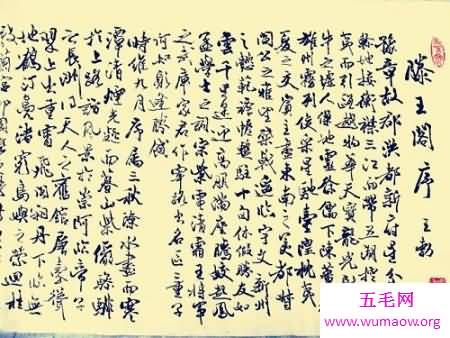 滕王閣序 王勃
豫章故郡洪都新府星分
軫地接衡襟三江而帶五湖控
蠻荊而引甌越物華天寶龍光
牛之墟人傑地靈徐孺下陳蕃
雄州霧列俊采星馳臺隍枕夷
夏之交賓主盡東南之美都督
閻公之雅望棨戟遙臨宇文新州
之懿範襜帷暫駐十旬休假勝友如
雲千里逢迎高朋滿座騰蛟起鳳
孟學士之詞宗紫電清霜王將軍
之武庫家君作宰路出名區童子
何知躬逢勝餞
時維九月序屬三秋潦水盡而寒
潭清煙光凝而暮山紫儼驂騑
於上路訪風景於崇阿臨帝子
之長洲得天人之舊館層巒聳
翠上出重霄飛閣翔丹下臨無
地鶴汀鳧渚窮島嶼之縈迴桂
五毛网
www.wumaow.org